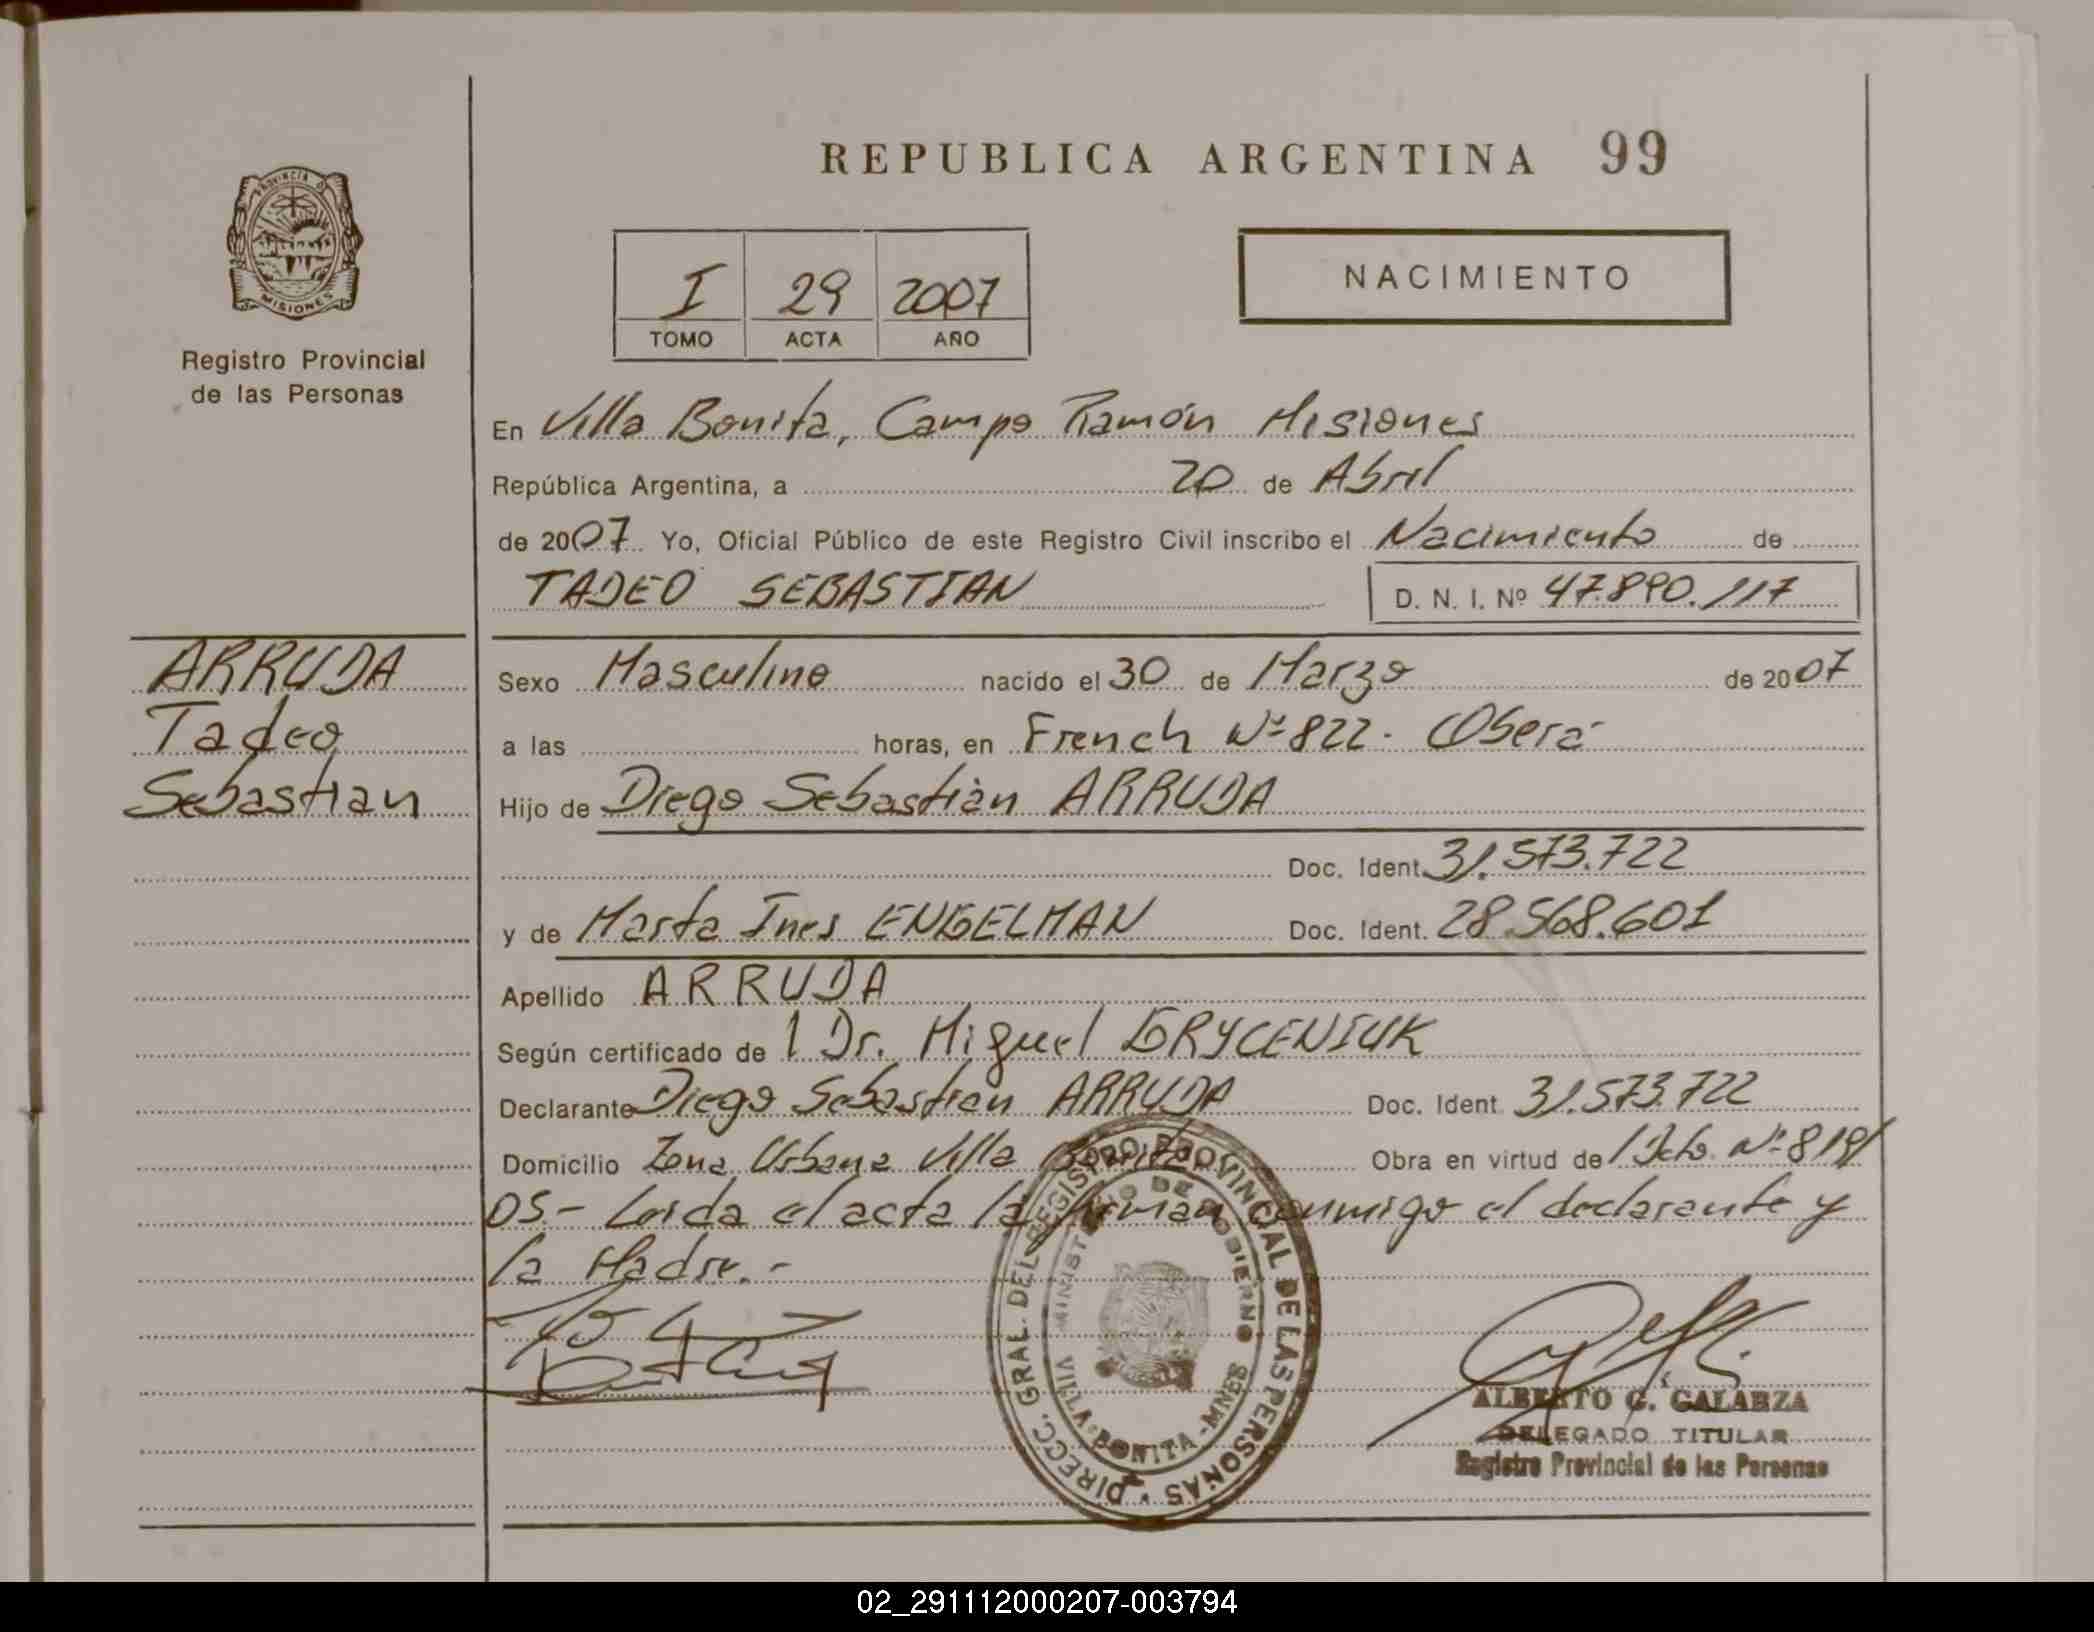 REPUBLICA ARGENTINA 99
PROVINCIA D
MISIONES
Registro Provincial
de las Personas
I 29 2007
TOMO ACTA AÑO
NACIMIENTO
En Villa Bonita, Campo Ramón Misiones
República Argentina, a 20 de Abril
de 2007 Yo, Oficial Público de este Registro Civil inscribo el Nacimiento de
TADEO SEBASTIAN D. N. I. Nº 47.890.117
ARRUDA
Tadeo
Sebastian
Sexo Masculino nacido el 30 de Marzo de 2007
a las horas, en French Nº 822. Oberá
Hijo de Diego Sebastián ARRUDA
Doc. Ident. 31.573.722
y de Marta Ines ENGELMAN Doc. Ident. 28.568.601
Apellido ARRUDA
Según certificado de l Dr. Miguel GRYCENIUK
Declarante Diego Sebastian ARRUDA Doc. Ident 31.573.722
Domicilio Zona Urbana Villa Bonita Obra en virtud de l Dcto. Nº 819/
05.- Leída el acta la firman conmigo el declarante y
la Madre.-
DIRECC. GRAL. DEL REGISTRO PROVINCIAL DE LAS PERSONAS
MINISTERIO DE GOBIERNO
VILLA BONITA - MNES
ALBERTO G. GALARZA
DELEGADO TITULAR
Registro Provincial de las Personas
02_291112000207-003794